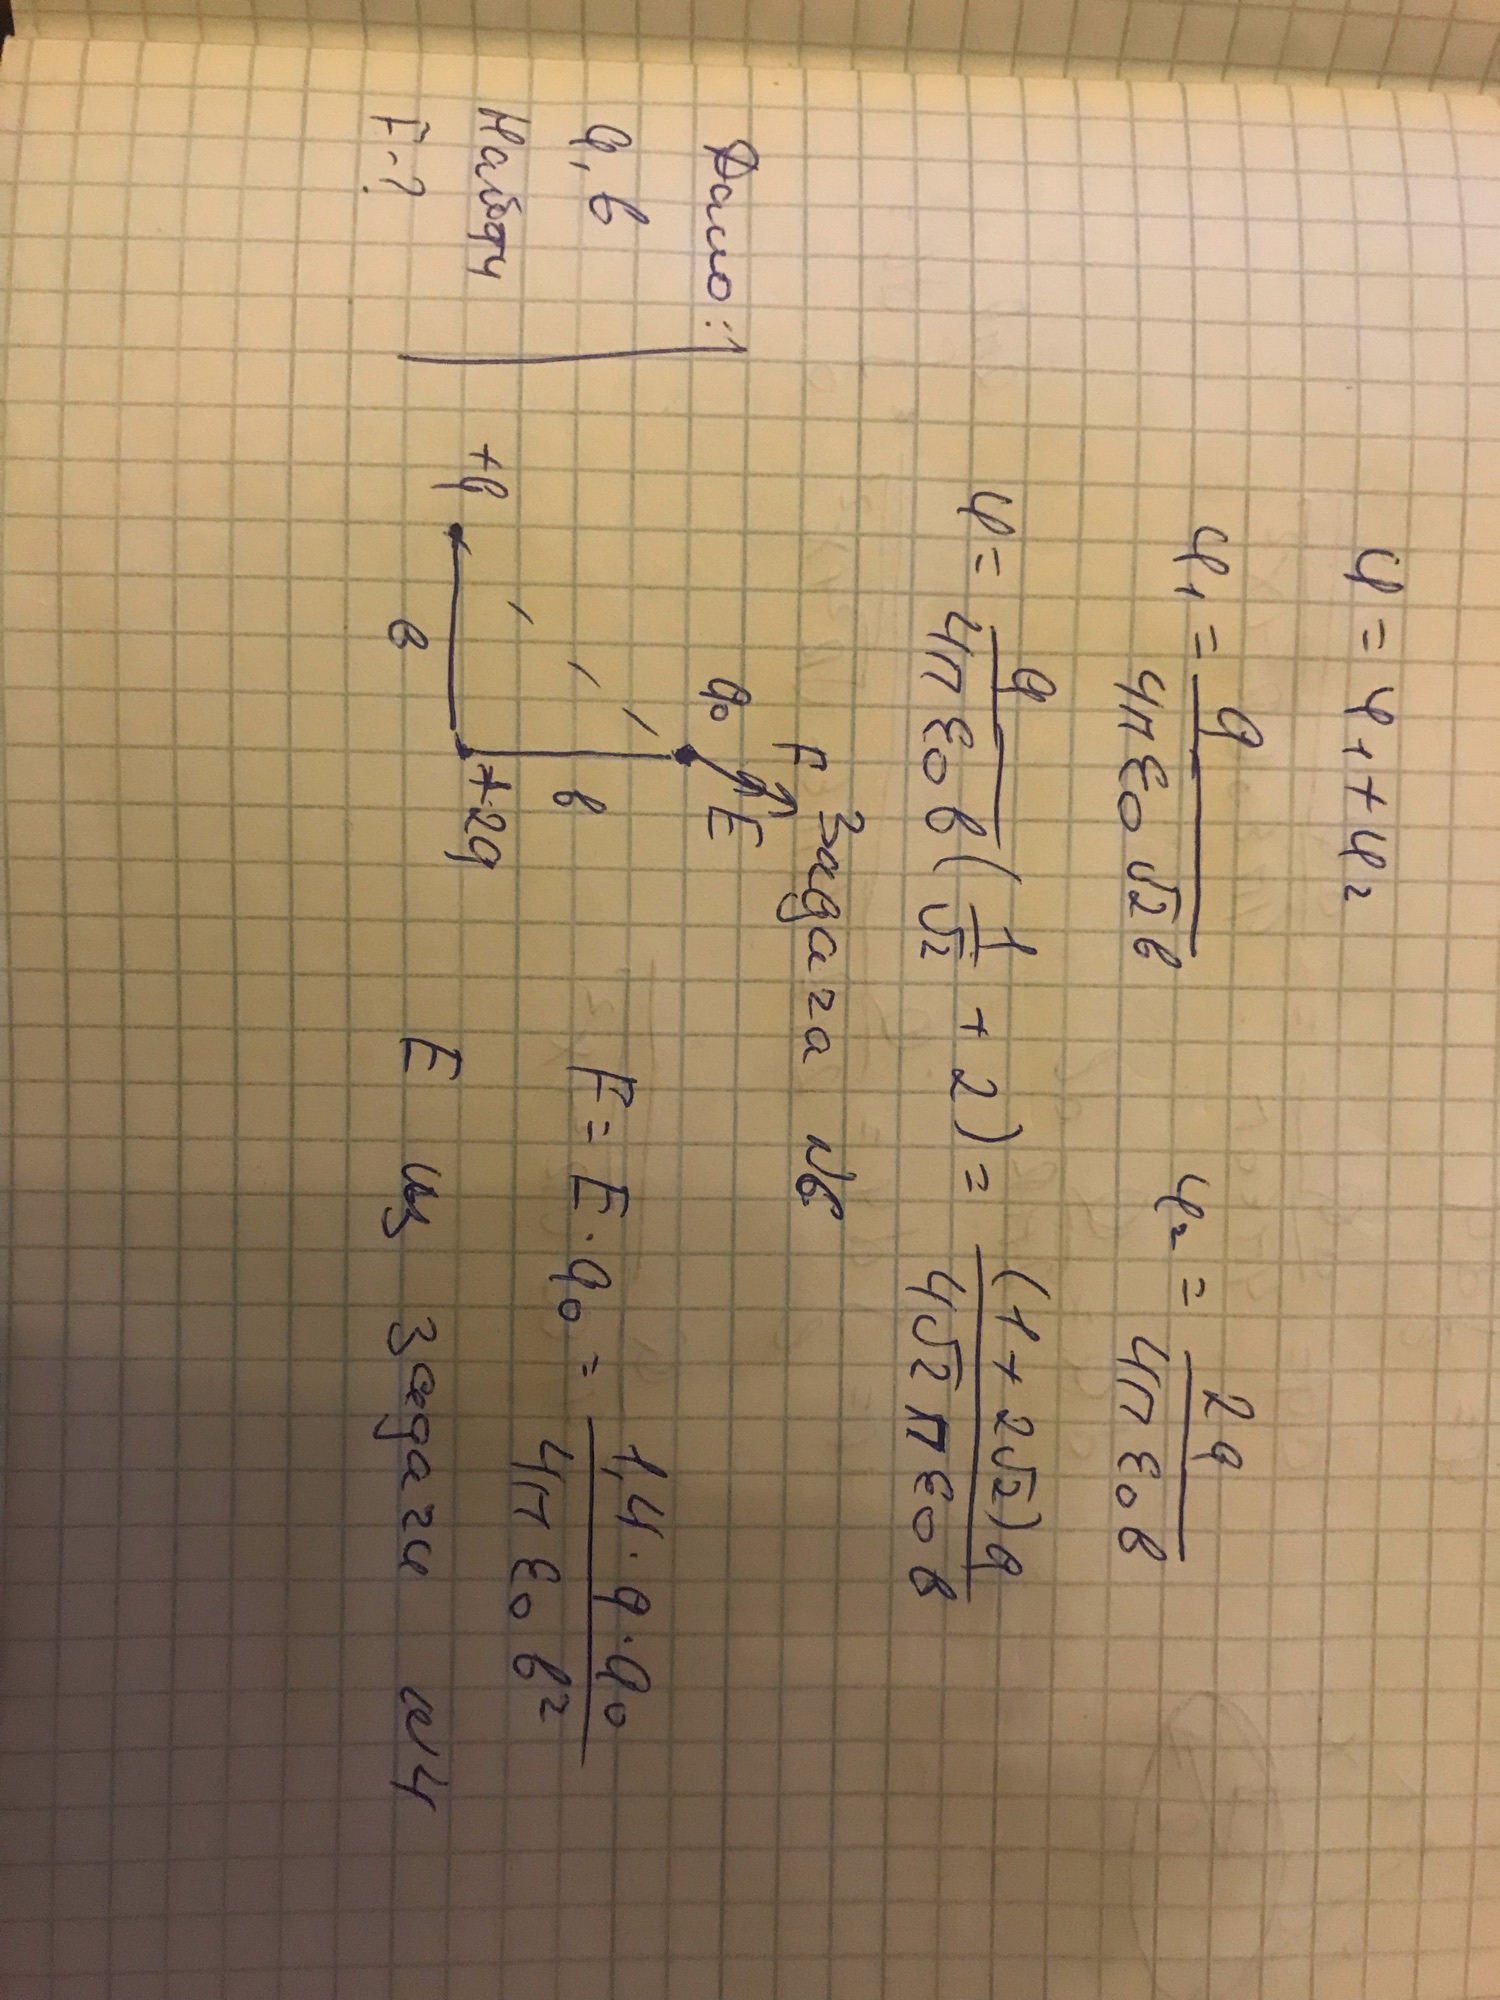 φ = φ₁ + φ₂
φ₁ = q / (4π ε₀ √2 в)    φ₂ = 2q / (4π ε₀ в)
φ = q / (4π ε₀ в) (1/√2 + 2) = (1 + 2√2)q / (4√2 π ε₀ в)
Задача №6
Дано:
q, в
Найти
F-?
F
q₀ E
в
+q +2q
в
F = E · q₀ = 1,4 · q · q₀ / (4π ε₀ в²)
E из задачи №4